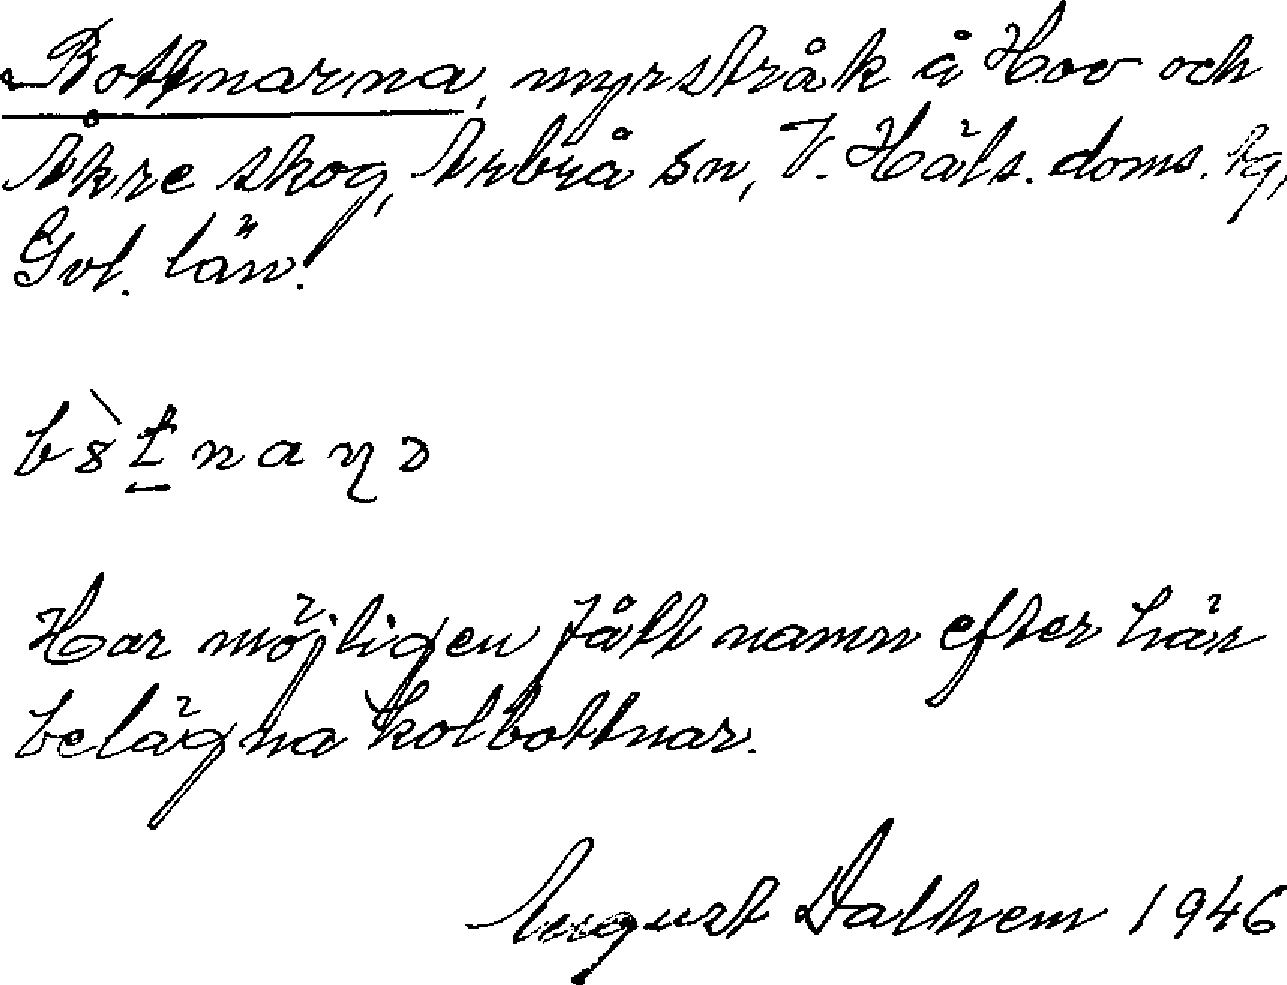 Bottnarna, myrstråk å Hov och
Åkre skog, Arbrå sn, V. Häls. doms. tg,
Gvl. län.
Har möjligen fått namn efter här
belägna kolbottnar.
August Dalhem 1946